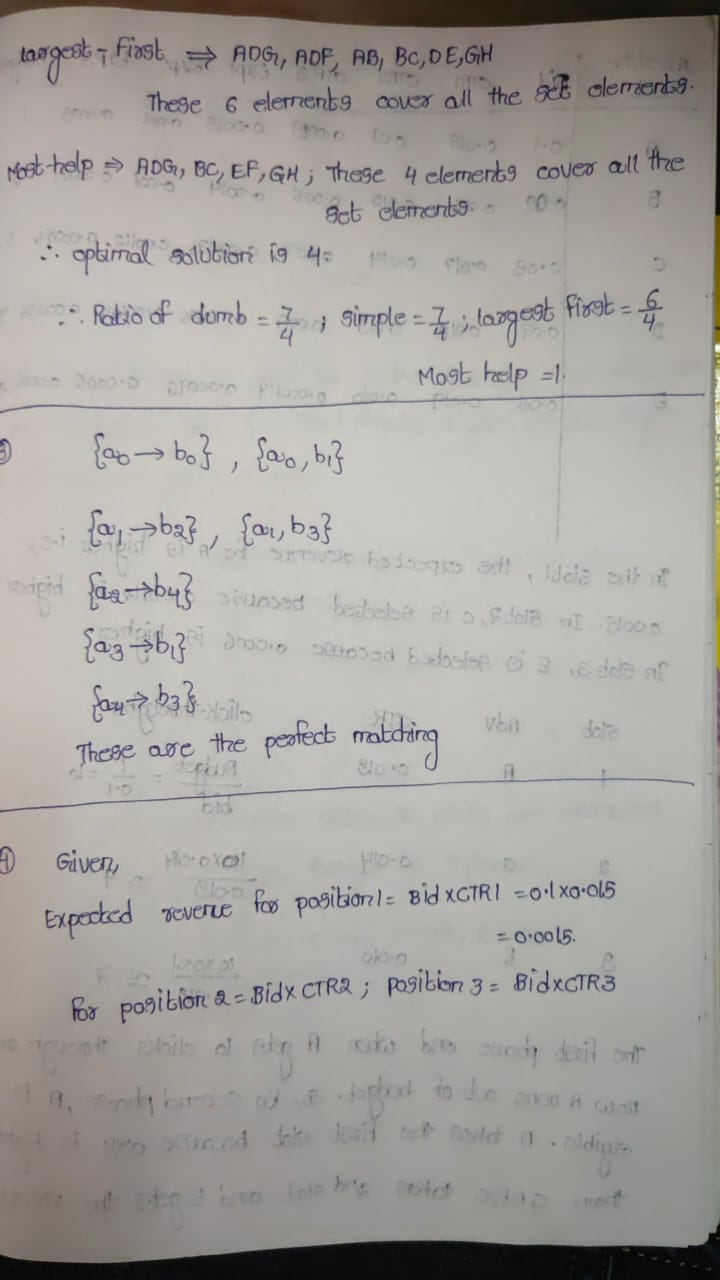 largest-First ⇒ ADG, ADF, AB, BC, DE, GH
These 6 elements cover all the set elements.
Most help ⇒ ADG, BC, EF, GH; These 4 elements cover all the
set elements.
∴ optimal solution is 4.
∴ Ratio of dumb = 7/4 ; simple = 7/4 ; largest first = 6/4
Most help = 1.
{a0 → b0} , {a0, b1}
{a1 → b2} , {a1, b3}
{a2 → b4}
{a3 → b1}
{a4 → b3}
These are the perfect matching
Given,
Expected revenue for position 1 = Bid x CTR1 = 0.1 x 0.015
= 0.0015.
For position 2 = Bid x CTR2 ; position 3 = Bid x CTR3